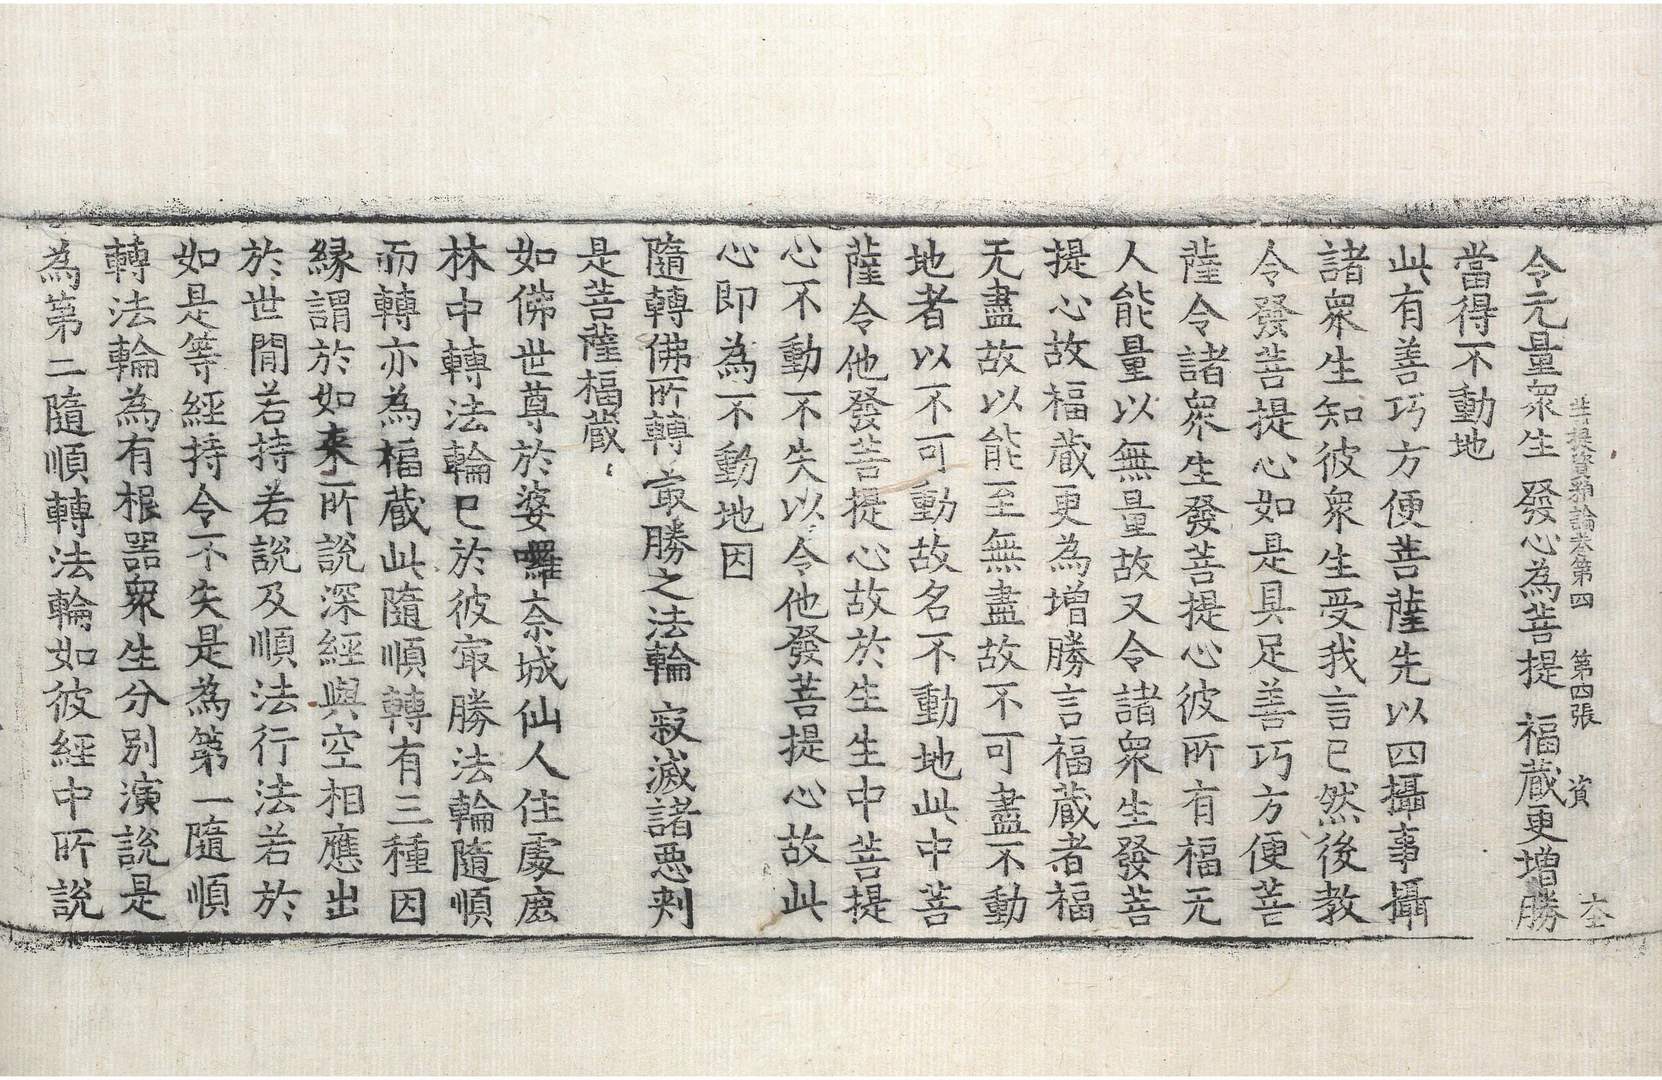 菩提資糧論卷第四 第四張 資 六
令无量衆生 發心為菩提 福蔵更增勝
當得不動地
此有善巧方便菩薩先以四攝事攝
諸衆生知彼衆生受我言已然後教
令發菩提心如是具足善巧方便菩
薩令諸衆生發菩提心彼所有福无
人能量以無量故又令諸衆生發菩
提心故福蔵更為增勝言福蔵者福
无盡故以能至無盡故不可盡不動
地者以不可動故名不動地此中菩
薩令他發菩提心故於生生中菩提
心不動不失以令他發菩提心故此
心即為不動地因
隨轉佛所轉 㝡勝之法輪 寂滅諸惡刺
是菩薩福蔵
如佛世尊於婆囉奈城仙人住處鹿
林中轉法輪已於彼㝡勝法輪隨順
而轉亦為福蔵此隨順轉有三種因
縁謂於如来所說深經與空相應出
於世間若持若說及順法行法若於
如是等經持令不失是為第一隨順
轉法輪為有根器衆生分別演說是
為第二隨順轉法輪如彼經中所說